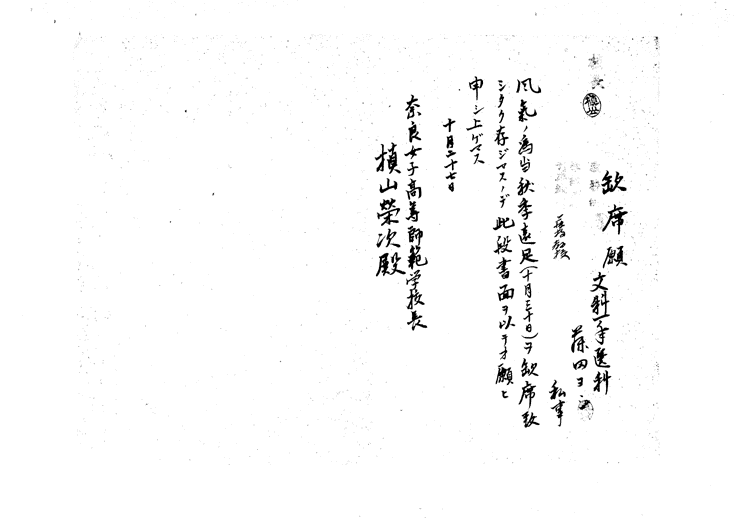 欽席願
文科一年選科
藤田ヨ
私事
風氣ノ為当秋季遠足(十月三十日)ヲ欽席致
シタク存ジマスノデ此段書面ヲ以テオ願ヒ
申シ上ゲマス
十月二十七日
奈良女子高等師範学校長
槙山榮次殿